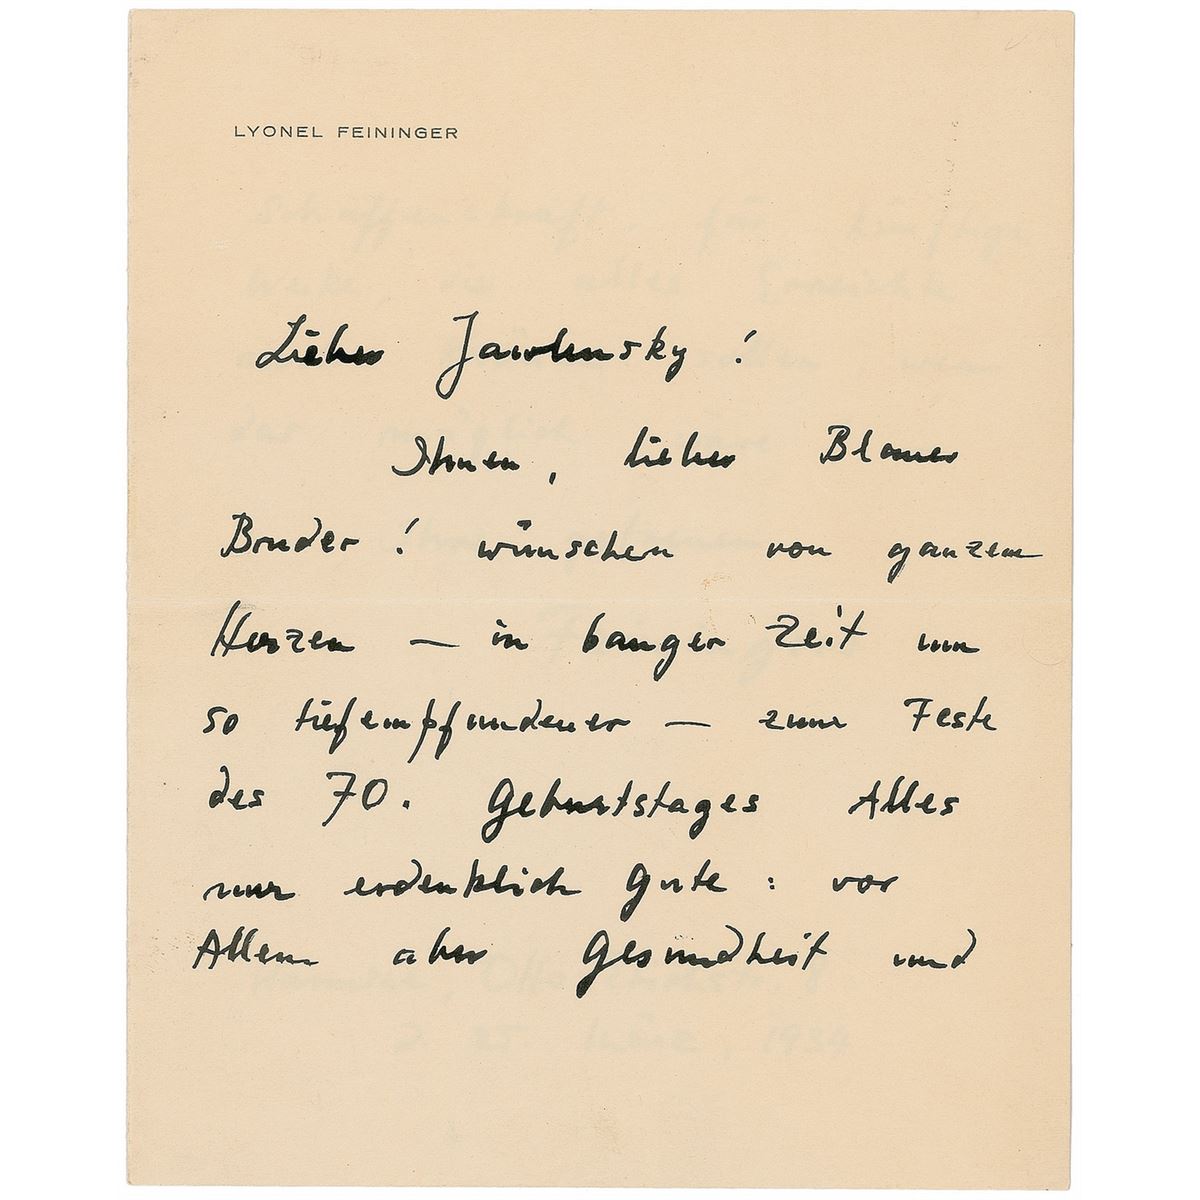 LYONEL FEININGER
Lieber Jawlensky!
Ihnen, lieber Blauer
Bruder! wünschen von ganzem
Herzen — in banger Zeit um
so tiefempfundener — zum Feste
des 70. Geburtstages Alles
nur erdenklich Gute: vor
Allem aber Gesundheit und